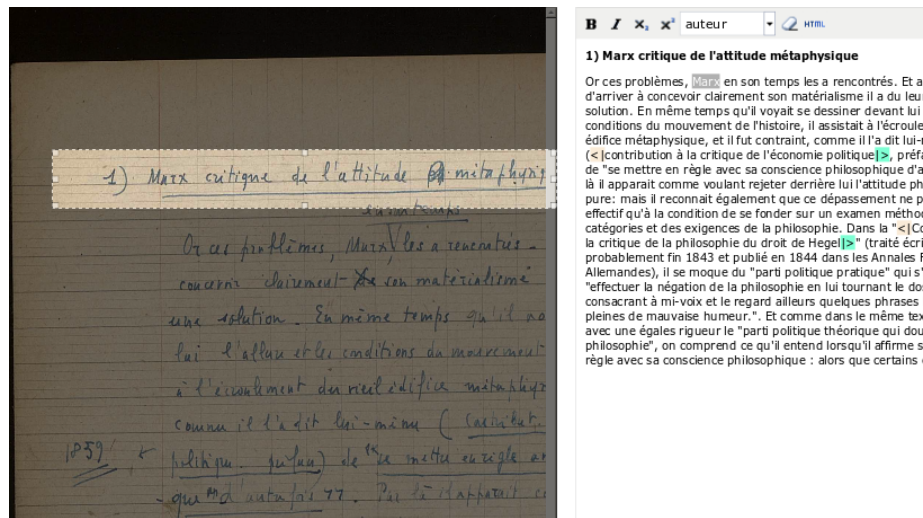 1) Marx critique de l'attitude métaphysiq
en son temps
Or ces problèmes, Marx les a rencontrés.
concevoir clairement son matérialisme
une solution. En même temps qu'il vo
lui l'allure et les conditions du mouvement
à l'écroulement du vieil édifice métaphys
comme il l'a dit lui-même ( contribut.
1859
politique. préface) de "se mettre en règle av
que d'autrefois ". Par là il apparait co
B I x₂ x² auteur HTML
1) Marx critique de l'attitude métaphysique
Or ces problèmes, Marx en son temps les a rencontrés. Et a
d'arriver à concevoir clairement son matérialisme il a du leu
solution. En même temps qu'il voyait se dessiner devant lui
conditions du mouvement de l'histoire, il assistait à l'écroule
édifice métaphysique, et il fut contraint, comme il l'a dit lui-m
(<|contribution à la critique de l'économie politique|>, préfa
de "se mettre en règle avec sa conscience philosophique d'a
là il apparait comme voulant rejeter derrière lui l'attitude ph
pure: mais il reconnait également que ce dépassement ne p
effectif qu'à la condition de se fonder sur un examen métho
catégories et des exigences de la philosophie. Dans la "<|Co
la critique de la philosophie du droit de Hegel|>" (traité écri
probablement fin 1843 et publié en 1844 dans les Annales F
Allemandes), il se moque du "parti politique pratique" qui s'
"effectuer la négation de la philosophie en lui tournant le dos
consacrant à mi-voix et le regard ailleurs quelques phrases
pleines de mauvaise humeur.". Et comme dans le même tex
avec une égales rigueur le "parti politique théorique qui dou
philosophie", on comprend ce qu'il entend lorsqu'il affirme s
règle avec sa conscience philosophique : alors que certains